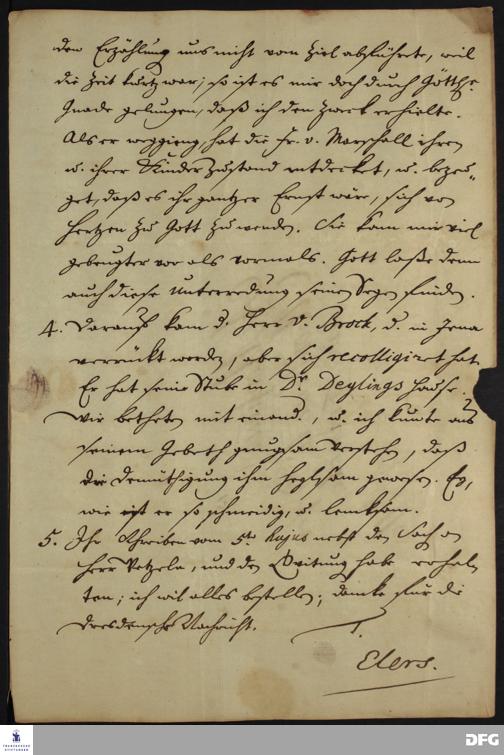 den Erzählung uns nicht vom Ziel abführete, weil
die Zeit kurtz war; so ist es mir doch durch Göttl.
Gnade gelungen, daß ich den Zweck erhielte.
Als er weggieng, hat die Fr. v. Marschall ihren
u. ihrer Kinder Zustand entdecket, u. bezeu„
get, daß es ihr gantzer Ernst wäre, sich von
Hertzen zu Gott zu wenden. Sie kam mir viel
gebeugter vor als vormals. Gott laße denn
auch diese Unterredung seinen Segen finden.
4. Darauf kam d. Herr v. Brock, d. in Jena
verrückt worden, aber sich recolligiret hat.
Er hat seine Stube in Dr. Deylings Hause.
Wir beteten mit einand., u. ich kunte aus
seinem Gebeth gnugsam verstehen, daß
die Demüthigung ihm heylsam gewesen. Ey,
wie ist er so geschmeidig, u. lencksam.
5. Ihr Schreiben vom 5t. hujus nebst den
Herr Petzeln, und den Quitung habe erhal„
ten; ich will alles bestellen; dancke für die
Dresdensche Nachricht.
Elers.
FRANCKESCHE
STIFTUNGEN
DFG